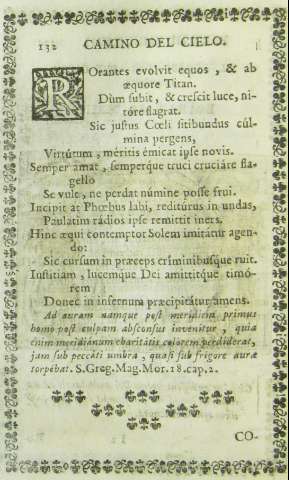 132 CAMINO DEL CIELO.
ROrantes evolvit equos, & ab
æquore Titan.
Dùm subit, & crescit luce, ni-
tóre flagrat.
Sic justus Cœli sitibundus cúl-
mina pergens,
Virtútum, méritis émicat ipse novis.
Semper amat, semperque truci cruciáre fla-
gello
Se vule, ne perdat númine posse frui.
Incipit at Phœbus labi, reditúrus in undas,
Paulatim rádios ipse remittit iners.
Hinc æqui contemptor Solem imitátur agen-
do:
Sic cursum in præceps criminibusque ruit.
Iustitiam, lucemque Dei amittitque timó-
rem
Donec in infernum præcipitátur amens.
Ad auram namque post meridiem primus
homo post culpam absconsus invenitur, quia
énim meridiánum charitátis calorem perdiderat,
jam sub peccáti umbra, quasi sub frigore auræ
torpébat. S. Greg. Mag. Mor. 18. cap. 2.
CO-